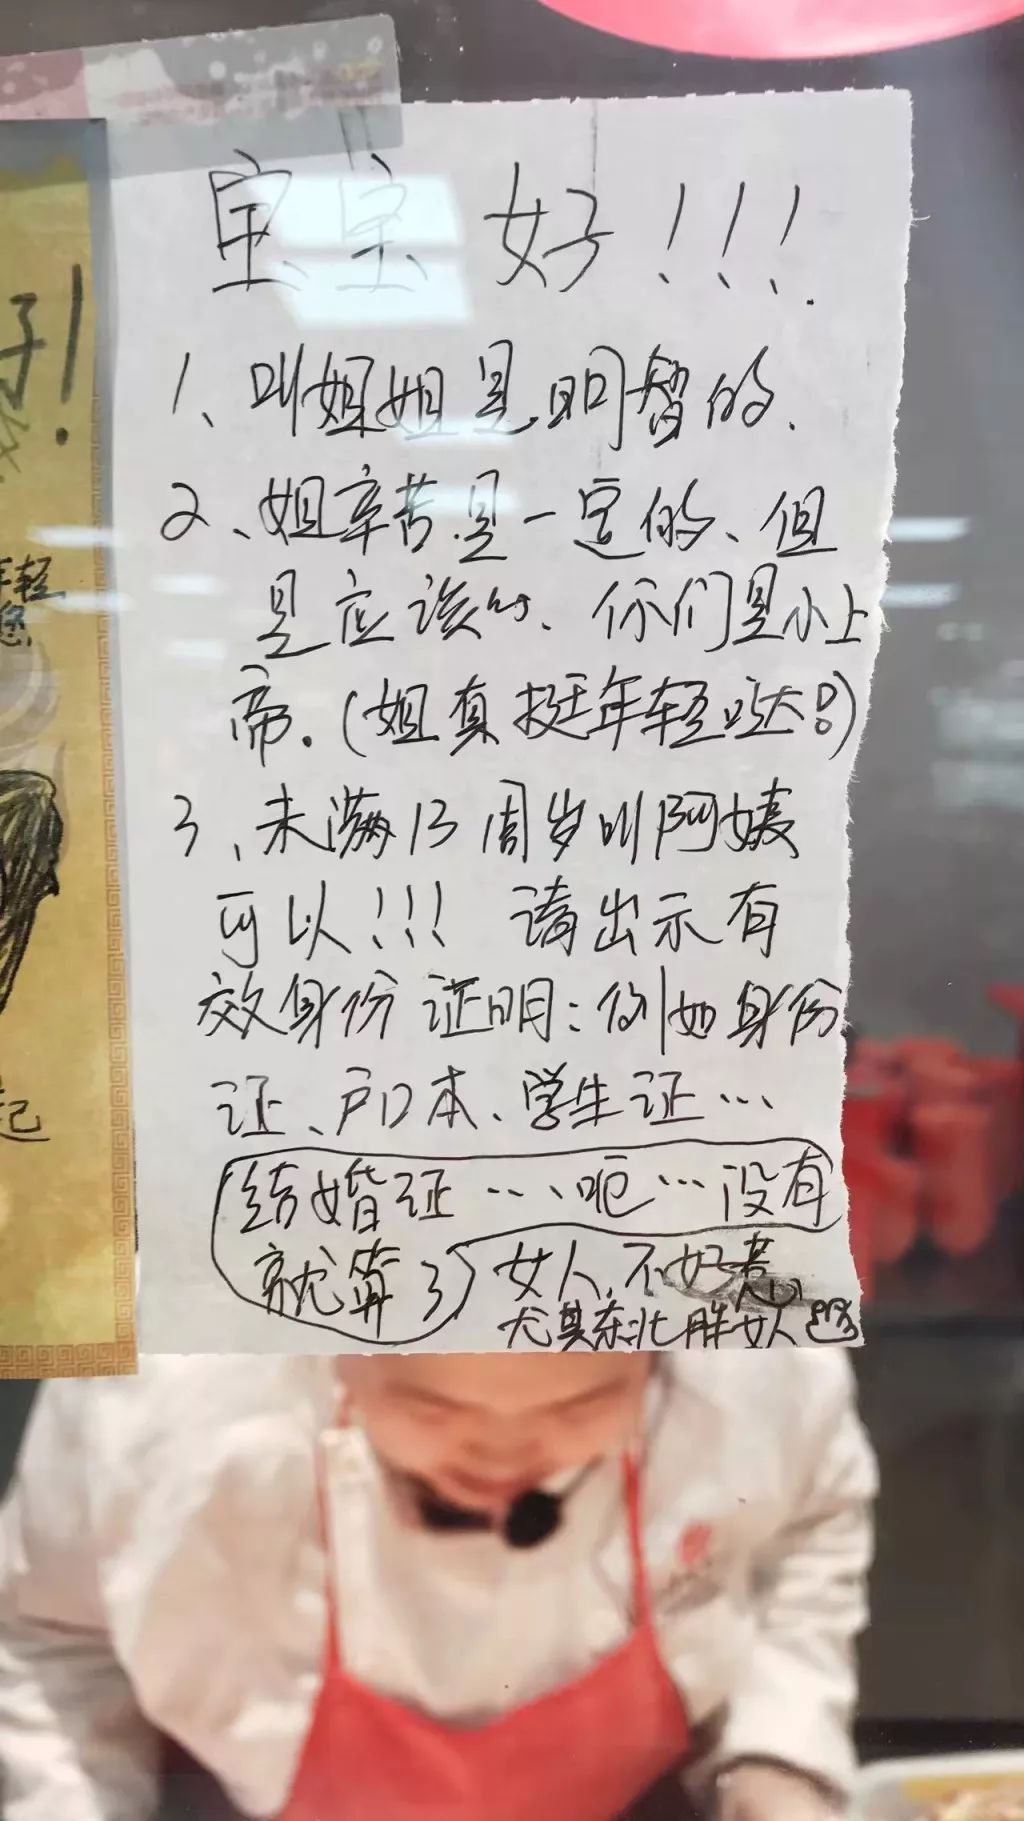 宝宝好!!!
1、叫姐姐是明智的.
2、姐辛苦是一定的、但
是应该的、你们是小上
帝.(姐真挺年轻哒!)
3、未满13周岁叫阿姨
可以!!! 请出示有
效身份证明:例如身份
证、户口本、学生证…
结婚证…、呃…没有
就算了 女人.不好惹
尤其东北胖女人
年轻
您
起